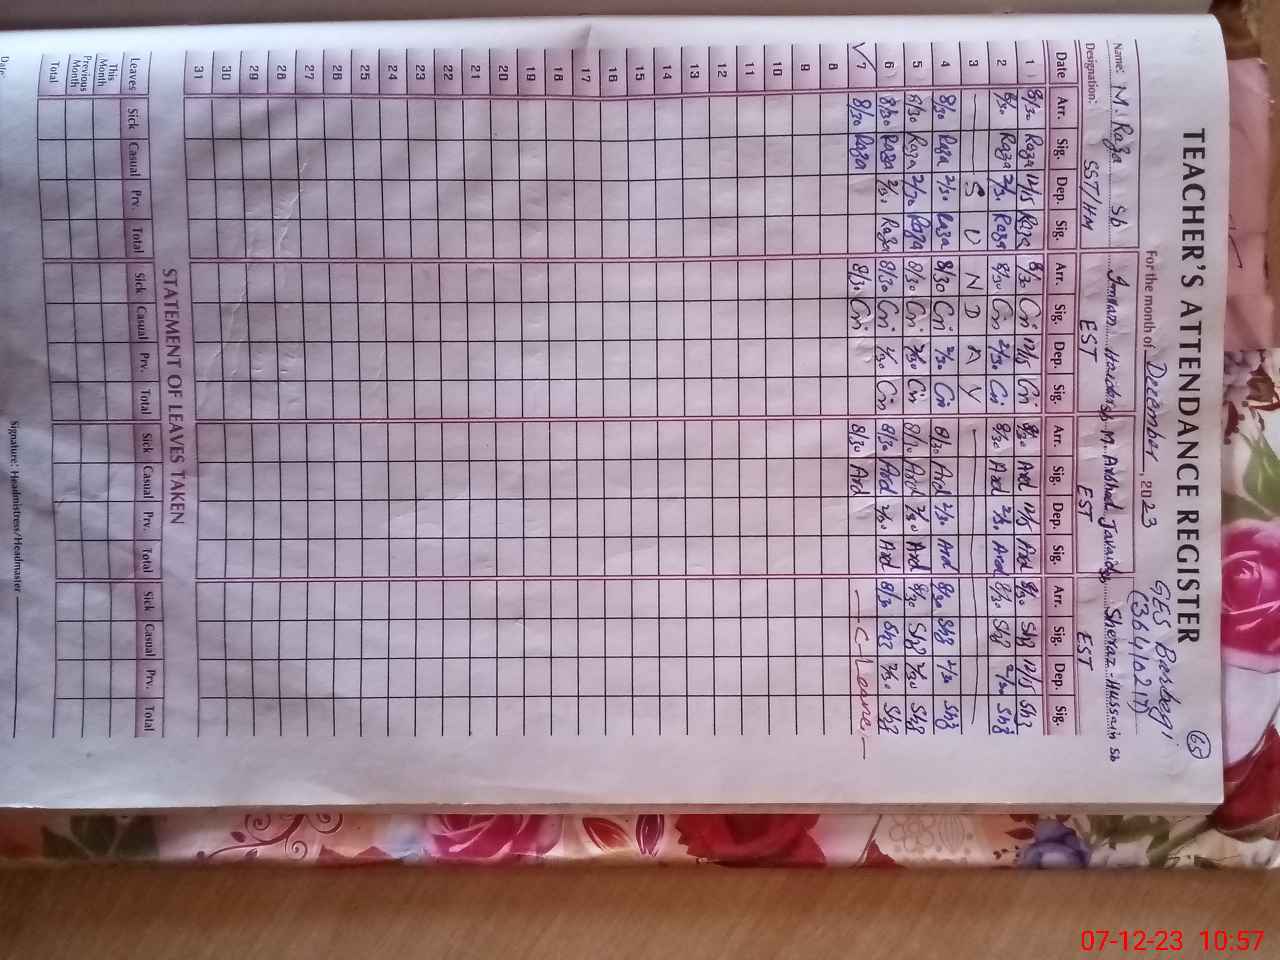 65
TEACHER'S ATTENDANCE REGISTER
GES Basbegi
(36410217)
For the month of December, 2023
Name: M. Raza Sb Imtian Haider Sb M. Arshad Javaid Sb Sheraz Hussain Sb
Designation: SST/HM EST EST EST
Date Arr. Sig. Dep. Sig. Arr. Sig. Dep. Sig. Arr. Sig. Dep. Sig. Arr. Sig. Dep. Sig.
1 8/30 Raza 12/15 Raza 8/30 12/15 8/30 Ard 12/15 Ard 8/30 Shz 12/15 Shz
2 8/30 Raza 2/30 Raza 8/30 2/30 8/30 Ard 2/30 Ard 8/30 Shz 2/30 Shz
3 S U N D A Y
4 8/30 Raza 2/30 Raza 8/30 2/30 8/30 Ard 2/30 Ard 8/30 Shz 2/30 Shz
5 8/30 Raza 2/30 Raza 8/30 2/30 8/30 Ard 2/30 Ard 8/30 Shz 2/30 Shz
6 8/30 Raza 2/30 Raza 8/30 2/30 8/30 Ard 2/30 Ard 8/30 Shz 2/30 Shz
7 8/30 Raza 8/30 8/30 Ard C-Leave
8
9
10
11
12
13
14
15
16
17
18
19
20
21
22
23
24
25
26
27
28
29
30
31
STATEMENT OF LEAVES TAKEN
Leaves Sick Casual Prv. Total Sick Casual Prv. Total Sick Casual Prv. Total Sick Casual Prv. Total
This Month
Previous Month
Total
Date: Signature: Headmistress/Headmaster
07-12-23 10:57